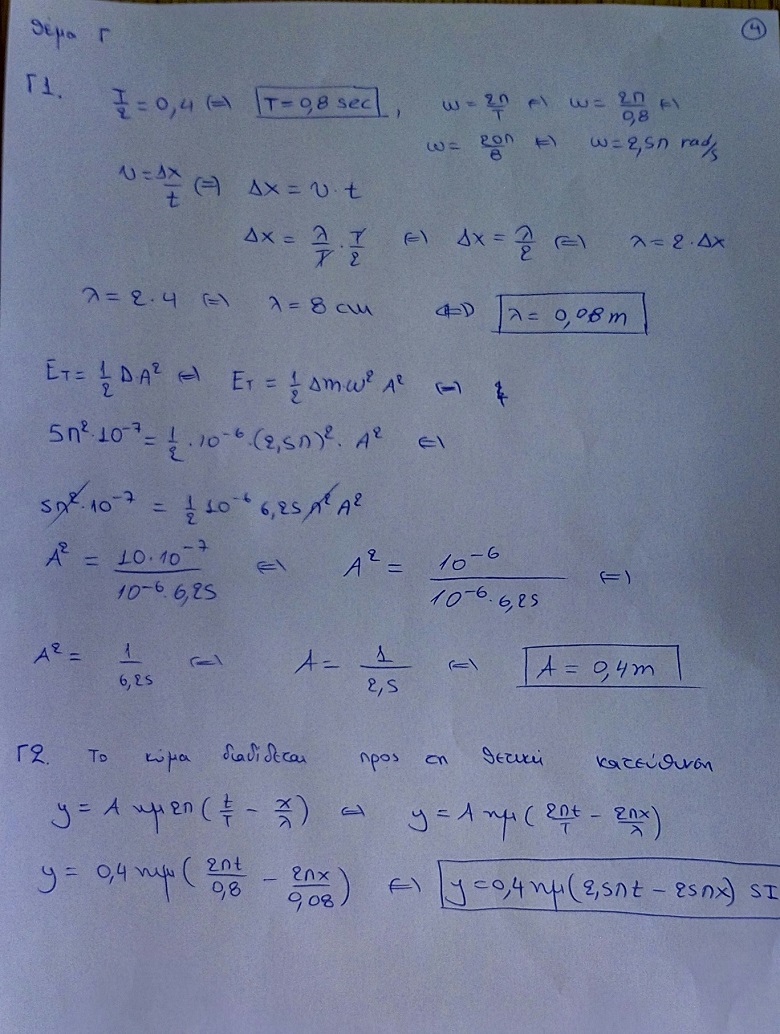 Θέμα Γ
4
Γ1. T/2 = 0,4 ⇔ T = 0,8 sec , ω = 2π/T ⇔ ω = 2π/0,8 ⇔
ω = 20π/8 ⇔ ω = 2,5π rad/s
υ = Δx/t ⇔ Δx = υ · t
Δx = λ/T · T/2 ⇔ Δx = λ/2 ⇔ λ = 2 · Δx
λ = 2 · 4 ⇔ λ = 8 cm ⇔ λ = 0,08 m
E_T = 1/2 D·A² ⇔ E_T = 1/2 Δm·ω² A² ⇔
5π²·10⁻⁷ = 1/2 · 10⁻⁶ · (2,5π)² · A² ⇔
5π²·10⁻⁷ = 1/2 10⁻⁶ 6,25 π² A²
A² = 10·10⁻⁷/10⁻⁶·6,25 ⇔ A² = 10⁻⁶/10⁻⁶·6,25 ⇔
A² = 1/6,25 ⇔ A = 1/2,5 ⇔ A = 0,4 m
Γ2. Το κύμα διαδίδεται προς τη θετική κατεύθυνση
y = A ημ2π(t/T − x/λ) ⇔ y = A ημ(2πt/T − 2πx/λ)
y = 0,4 ημ(2πt/0,8 − 2πx/0,08) ⇔ y = 0,4 ημ(2,5πt − 25πx) SI